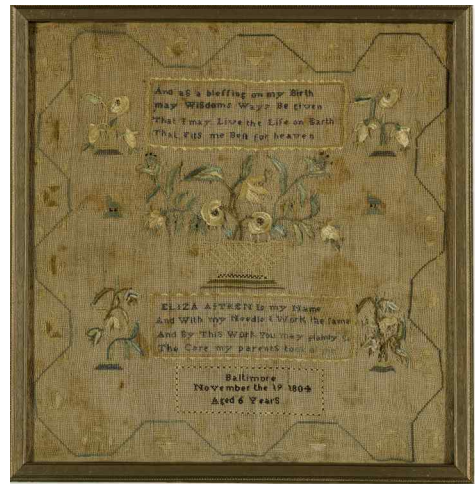 And as a blessing on my Birth
may Wisdoms Ways Be given
That I may Live the Life on Earth
That Fits me Best for heaven
ELIZA AITKEN is my Name
And With my Needle I Work the same
And By This Work You may plainly
The Care my parents took of me
Baltimore
November the 19 1804
Aged 6 Years